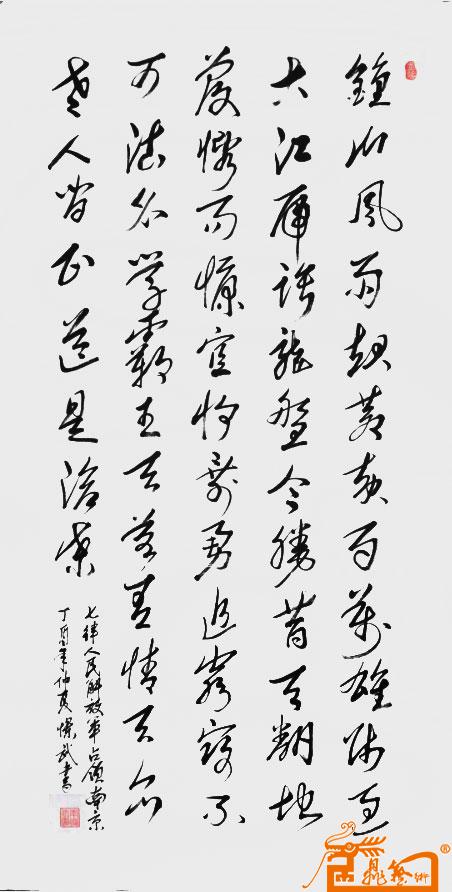 鍾山風雨起蒼黄百萬雄師過
大江虎踞龍盤今勝昔天翻地
覆慨而慷宜將剩勇追窮寇不
可沽名學霸王天若有情天亦
老人間正道是滄桑
七律人民解放軍占領南京
丁酉年仲夏武書